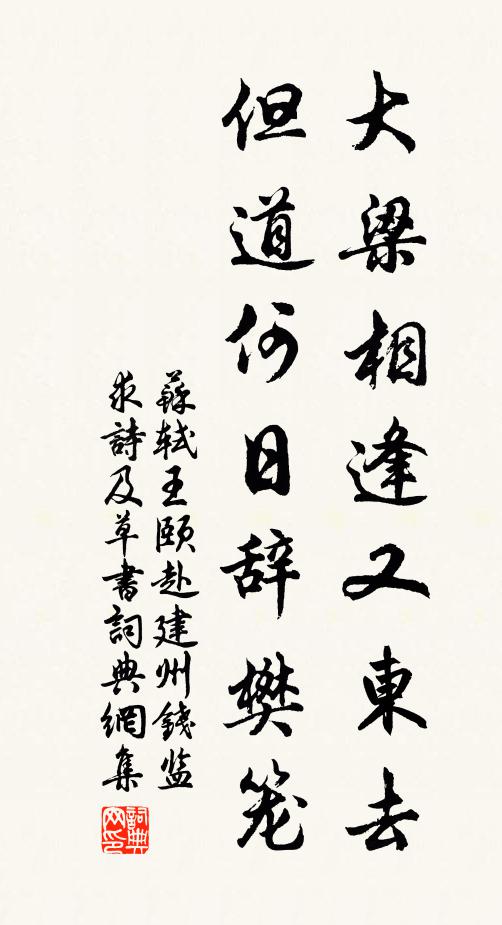 大梁相逢又東去
但道何日辞樊笼
蘇轼王颐赴建州錢监
求詩及草書詞典網集
詞典网印